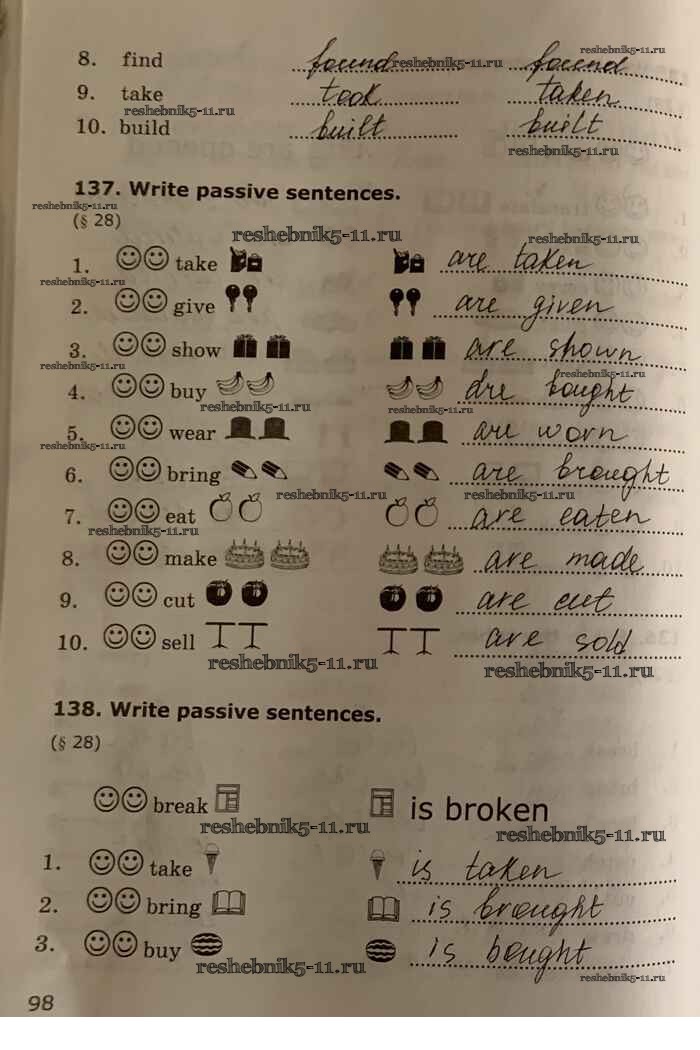 reshebnik5-11.ru
8. find found reshebnik5-11.ru found
9. take took taken
reshebnik5-11.ru
10. build built built
reshebnik5-11.ru
137. Write passive sentences.
reshebnik5-11.ru
(§ 28)
reshebnik5-11.ru
reshebnik5-11.ru
1. take are taken
reshebnik5-11.ru
2. give are given
3. show are shown
reshebnik5-11.ru
reshebnik5-11.ru
4. buy are bought
reshebnik5-11.ru
reshebnik5-11.ru
5. wear are worn
reshebnik5-11.ru
6. bring are brought
reshebnik5-11.ru reshebnik5-11.ru
7. eat are eaten
reshebnik5-11.ru
8. make are made
9. cut are cut
10. sell are sold
reshebnik5-11.ru reshebnik5-11.ru
138. Write passive sentences.
(§ 28)
break is broken
reshebnik5-11.ru reshebnik5-11.ru
1. take is taken
2. bring is brought
3. buy is bought
reshebnik5-11.ru reshebnik5-11.ru
98